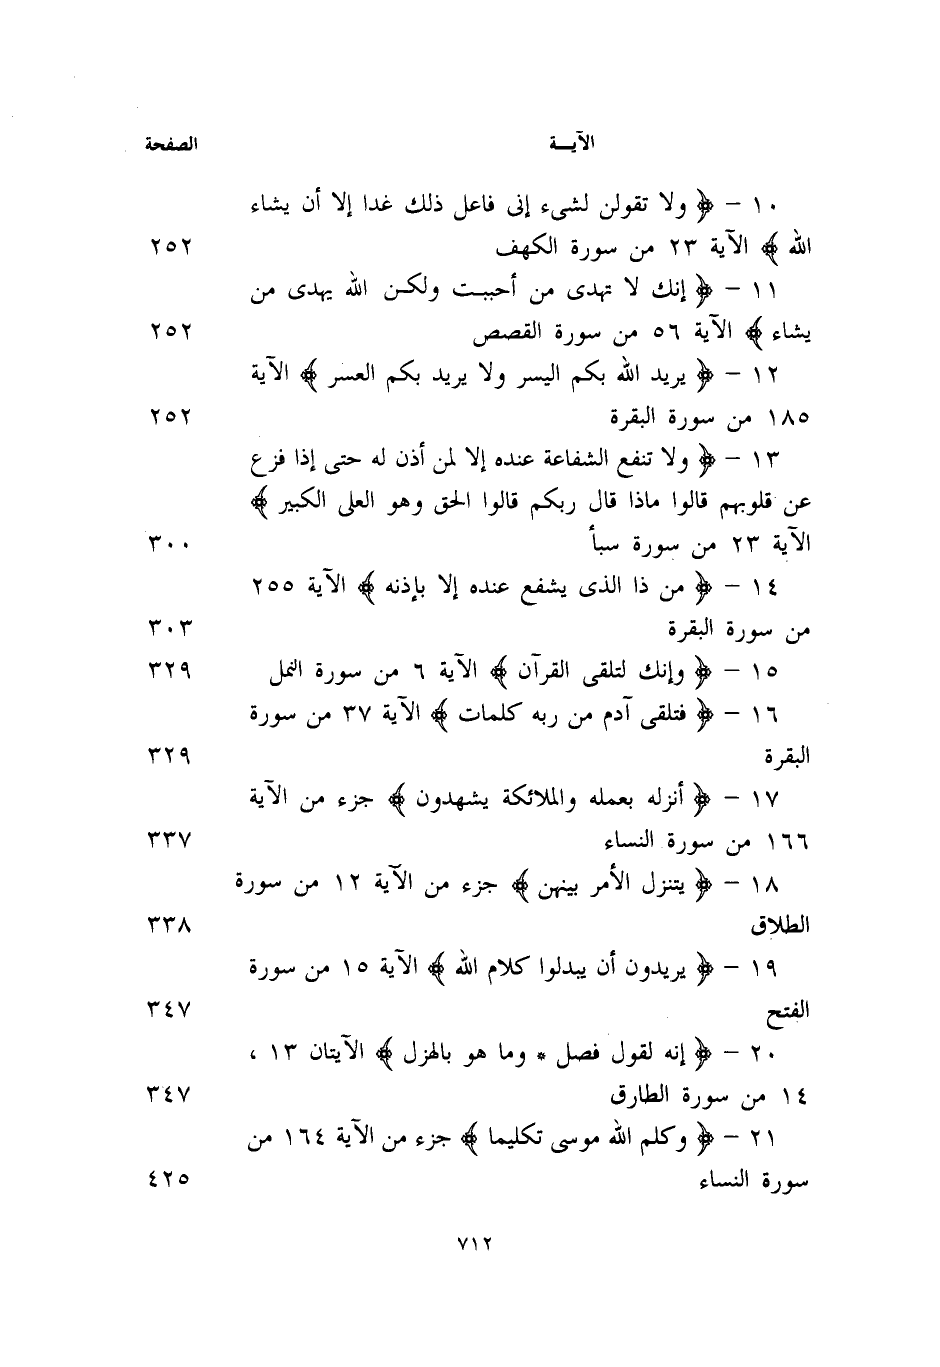 الآيــة الصفحة
١٠ – ﴿ ولا تقولن لشىء إنى فاعل ذلك غدا إلا أن يشاء
الله ﴾ الآية ٢٣ من سورة الكهف ٢٥٢
١١ – ﴿ إنك لا تهدى من أحببت ولكن الله يهدى من
يشاء ﴾ الآية ٥٦ من سورة القصص ٢٥٢
١٢ – ﴿ يريد الله بكم اليسر ولا يريد بكم العسر ﴾ الآية
١٨٥ من سورة البقرة ٢٥٢
١٣ – ﴿ ولا تنفع الشفاعة عنده إلا لمن أذن له حتى إذا فزع
عن قلوبهم قالوا ماذا قال ربكم قالوا الحق وهو العلى الكبير ﴾
الآية ٢٣ من سورة سبأ ٣٠٠
١٤ – ﴿ من ذا الذى يشفع عنده إلا بإذنه ﴾ الآية ٢٥٥
من سورة البقرة ٣٠٣
١٥ – ﴿ وإنك لتلقى القرآن ﴾ الآية ٦ من سورة النمل ٣٢٩
١٦ – ﴿ فتلقى آدم من ربه كلمات ﴾ الآية ٣٧ من سورة
البقرة ٣٢٩
١٧ – ﴿ أنزله بعمله والملائكة يشهدون ﴾ جزء من الآية
١٦٦ من سورة النساء ٣٣٧
١٨ – ﴿ يتنزل الأمر بينهن ﴾ جزء من الآية ١٢ من سورة
الطلاق ٣٣٨
١٩ – ﴿ يريدون أن يبدلوا كلام الله ﴾ الآية ١٥ من سورة
الفتح ٣٤٧
٢٠ – ﴿ إنه لقول فصل * وما هو بالهزل ﴾ الآيتان ١٣ ،
١٤ من سورة الطارق ٣٤٧
٢١ – ﴿ وكلم الله موسى تكليما ﴾ جزء من الآية ١٦٤ من
سورة النساء ٤٢٥
٧١٢